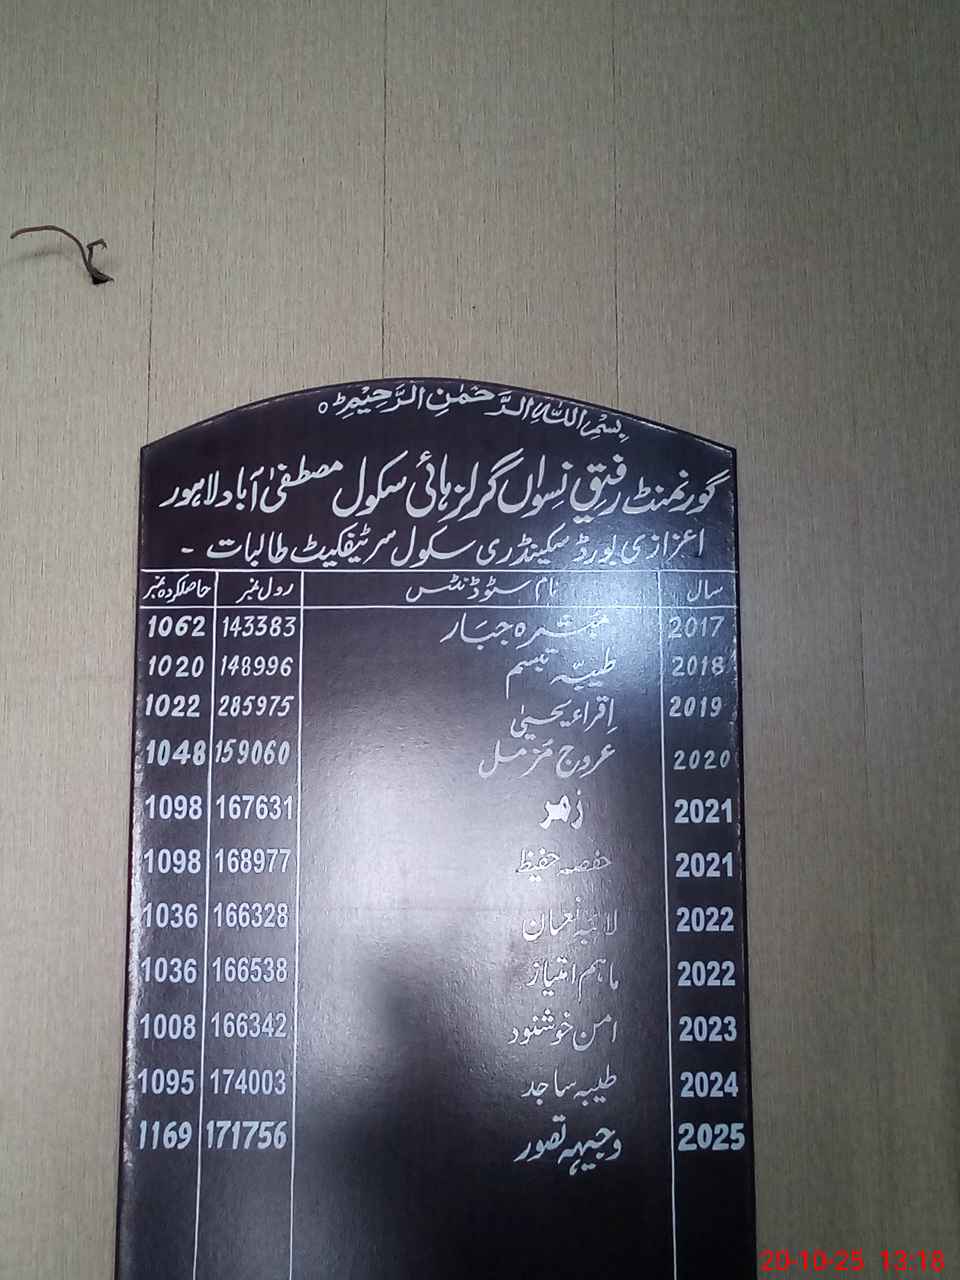 بِسْمِ اللّٰهِ الرَّحْمٰنِ الرَّحِيْمِ ط ہ
گورنمنٹ رفیق نسواں گرلز ہائی سکول مصطفیٰ آباد لاہور
اعزازی بورڈ سکینڈری سکول سرٹیفکیٹ طالبات -
سال نام سٹوڈنٹس رول نمبر حاصلکردہ نمبر
2017 مبشرہ جبار 143383 1062
2018 طیبّہ تبسم 148996 1020
2019 اِقراء یحییٰ 285975 1022
2020 عروج مُزمل 159060 1048
2021 زمر 167631 1098
2021 حفصہ حفیظ 168977 1098
2022 لائبہ نعمان 166328 1036
2022 ماہم امتیاز 166538 1036
2023 امن خوشنود 166342 1008
2024 طیبہ ساجد 174003 1095
2025 وجیہہ تصور 171756 1169
20-10-25 13:18